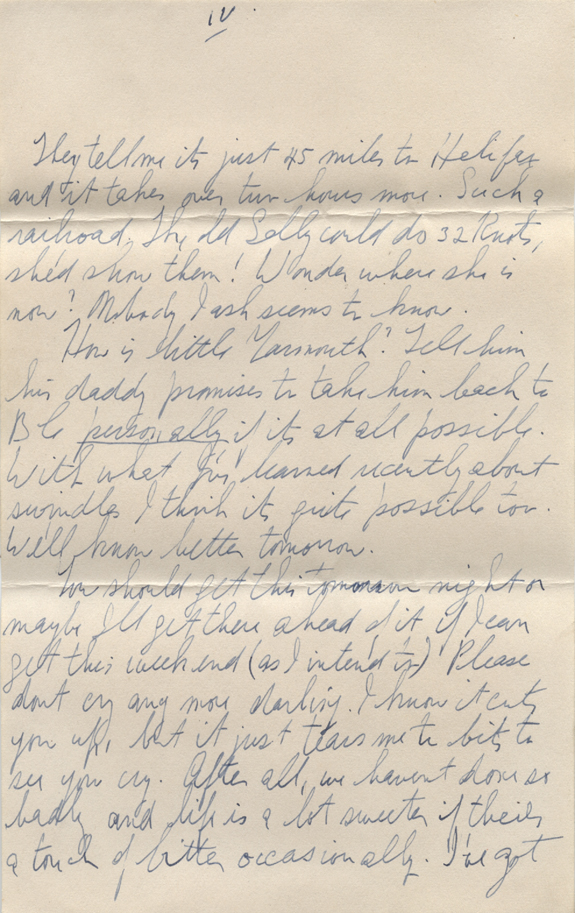 IV
They tell me its just 45 miles to Halifax
and it takes over two hours more. Such a
railroad. The old Sally could do 32 Knots,
she'd show them! Wonder where she is
now? Nobody I ask seems to know.
How is little 'Yarmouth'? Tell him
his daddy promises to take him back to
personally if its at all possible.
With what I've learned recently about
swindles I think its quite possible too.
We'll know better tomorrow.
You should get this tomorrow night or
maybe I'll get there ahead of it if I can
get this weekend (as I intend to) Please
dont cry any more darling. I know it cuts
you up, but it just tears me to bits to
see you cry. After all, we havent done so
badly and life is a lot sweeter if theirs
a touch of bitter occasionally. I've got